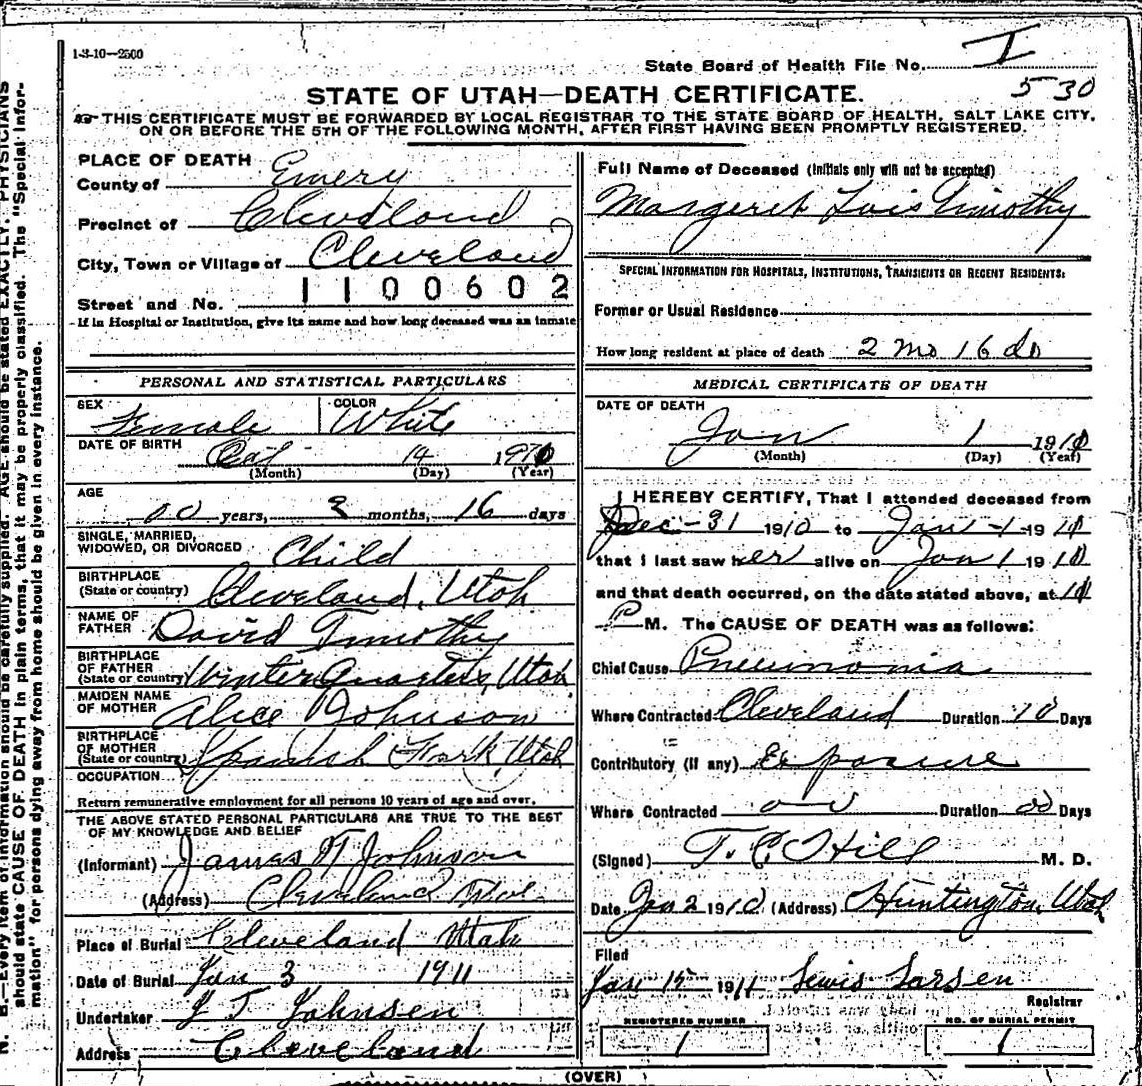 1-3-10—2500
State Board of Health File No. I
530
STATE OF UTAH—DEATH CERTIFICATE.
THIS CERTIFICATE MUST BE FORWARDED BY LOCAL REGISTRAR TO THE STATE BOARD OF HEALTH, SALT LAKE CITY,
ON OR BEFORE THE 5TH OF THE FOLLOWING MONTH, AFTER FIRST HAVING BEEN PROMPTLY REGISTERED.
PLACE OF DEATH
County of Emery
Precinct of Cleveland
City, Town or Village of Cleveland
Street and No. 1100602
If in Hospital or Institution, give its name and how long deceased was an inmate
PERSONAL AND STATISTICAL PARTICULARS
SEX Female COLOR White
DATE OF BIRTH Oct 14 1910
(Month) (Day) (Year)
AGE
00 years, 2 months, 16 days
SINGLE, MARRIED,
WIDOWED, OR DIVORCED Child
BIRTHPLACE
(State or country) Cleveland, Utah
NAME OF
FATHER David Timothy
BIRTHPLACE
OF FATHER
(State or country) Winter Quarters, Utah
MAIDEN NAME
OF MOTHER Alice Johnson
BIRTHPLACE
OF MOTHER
(State or country) Spanish Fork, Utah
OCCUPATION
Return remunerative employment for all persons 10 years of age and over.
THE ABOVE STATED PERSONAL PARTICULARS ARE TRUE TO THE BEST
OF MY KNOWLEDGE AND BELIEF
(Informant) James T Johnson
(Address) Cleveland Utah
Place of Burial Cleveland Utah
Date of Burial Jan 3 1911
Undertaker J T Johnsen
Address Cleveland
Full Name of Deceased (Initials only will not be accepted)
Margeret Lois Timothy
SPECIAL INFORMATION FOR HOSPITALS, INSTITUTIONS, TRANSIENTS OR RECENT RESIDENTS:
Former or Usual Residence
How long resident at place of death 2 mo 16 ds
MEDICAL CERTIFICATE OF DEATH
DATE OF DEATH
Jan 1 1911
(Month) (Day) (Year)
I HEREBY CERTIFY, That I attended deceased from
Dec-31 1910 to Jan-1-1911
that I last saw her alive on Jan 1 1911
and that death occurred, on the date stated above, at
P M. The CAUSE OF DEATH was as follows:
Chief Cause Pneumonia
Where Contracted Cleveland Duration 10 Days
Contributory (if any) Exposure
Where Contracted Duration 00 Days
(Signed) T. C. Hill M. D.
Date Jan 2 1910 (Address) Huntington, Utah
Filed
Jan 15 1911 Lewis Larsen
Registrar
REGISTERED NUMBER
1
NO. OF BURIAL PERMIT
1
(OVER)
N. B.—Every item of information should be carefully supplied. AGE should be stated EXACTLY. PHYSICIANS
should state CAUSE OF DEATH in plain terms, that it may be properly classified. The "Special Infor-
mation" for persons dying away from home should be given in every instance.